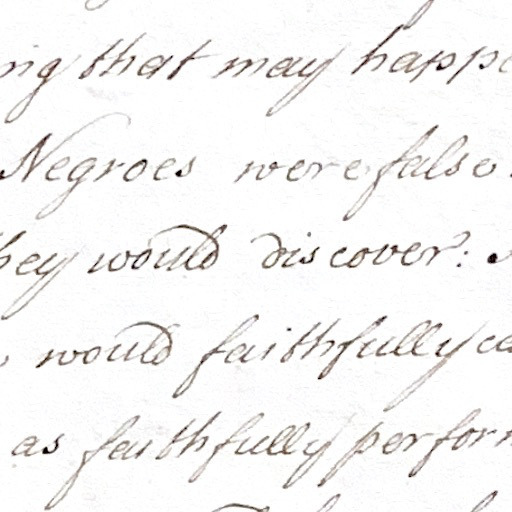 ng that may happe
Negroes were false
hey would discover:
would faithfully ca
as faithfully perform